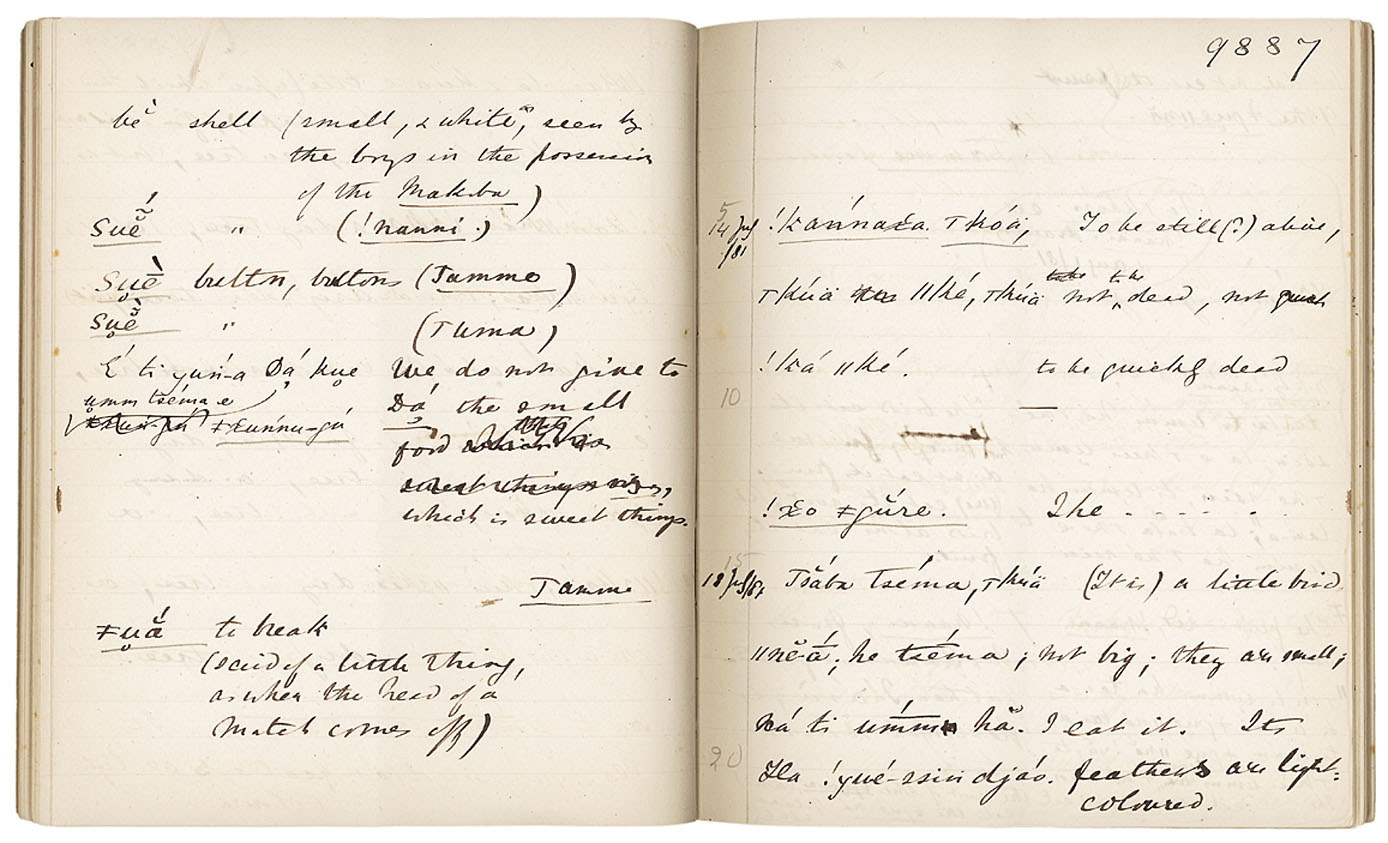 bĕ shell (small, & white, seen by
the boys in the possession
of the Makoba)
Sŭĕ́ " (!nanni.)
Sụḕ button, buttons (Tamme)
Sụĕ̀ " (Tuma)
É ti yuń-a Dạ́ kụe We do not give to
ụmm tséma e Dá the small
≠xunnu-gú food
which is sweet things.
Tamme
≠ụắ to break
(said of a little thing,
as when the head of a
match comes off)
9887
5
14 July /81 !kańnaxa. тkóä, To be still (?) alive,
тkúä ǁké, тkúä not to be dead, not quick
!ká ǁké. to be quickly dead
10
!xo ≠gúre. The - - - - -
15
18 July/81 Tsába tséma, тkúä (It is) a little bird
ǁnĕ-á; he tséma; not big; they are small;
ká ti úmm hă. I eat it. Its
20
Ha !gué-ssin djáo. feathers are light-
coloured.